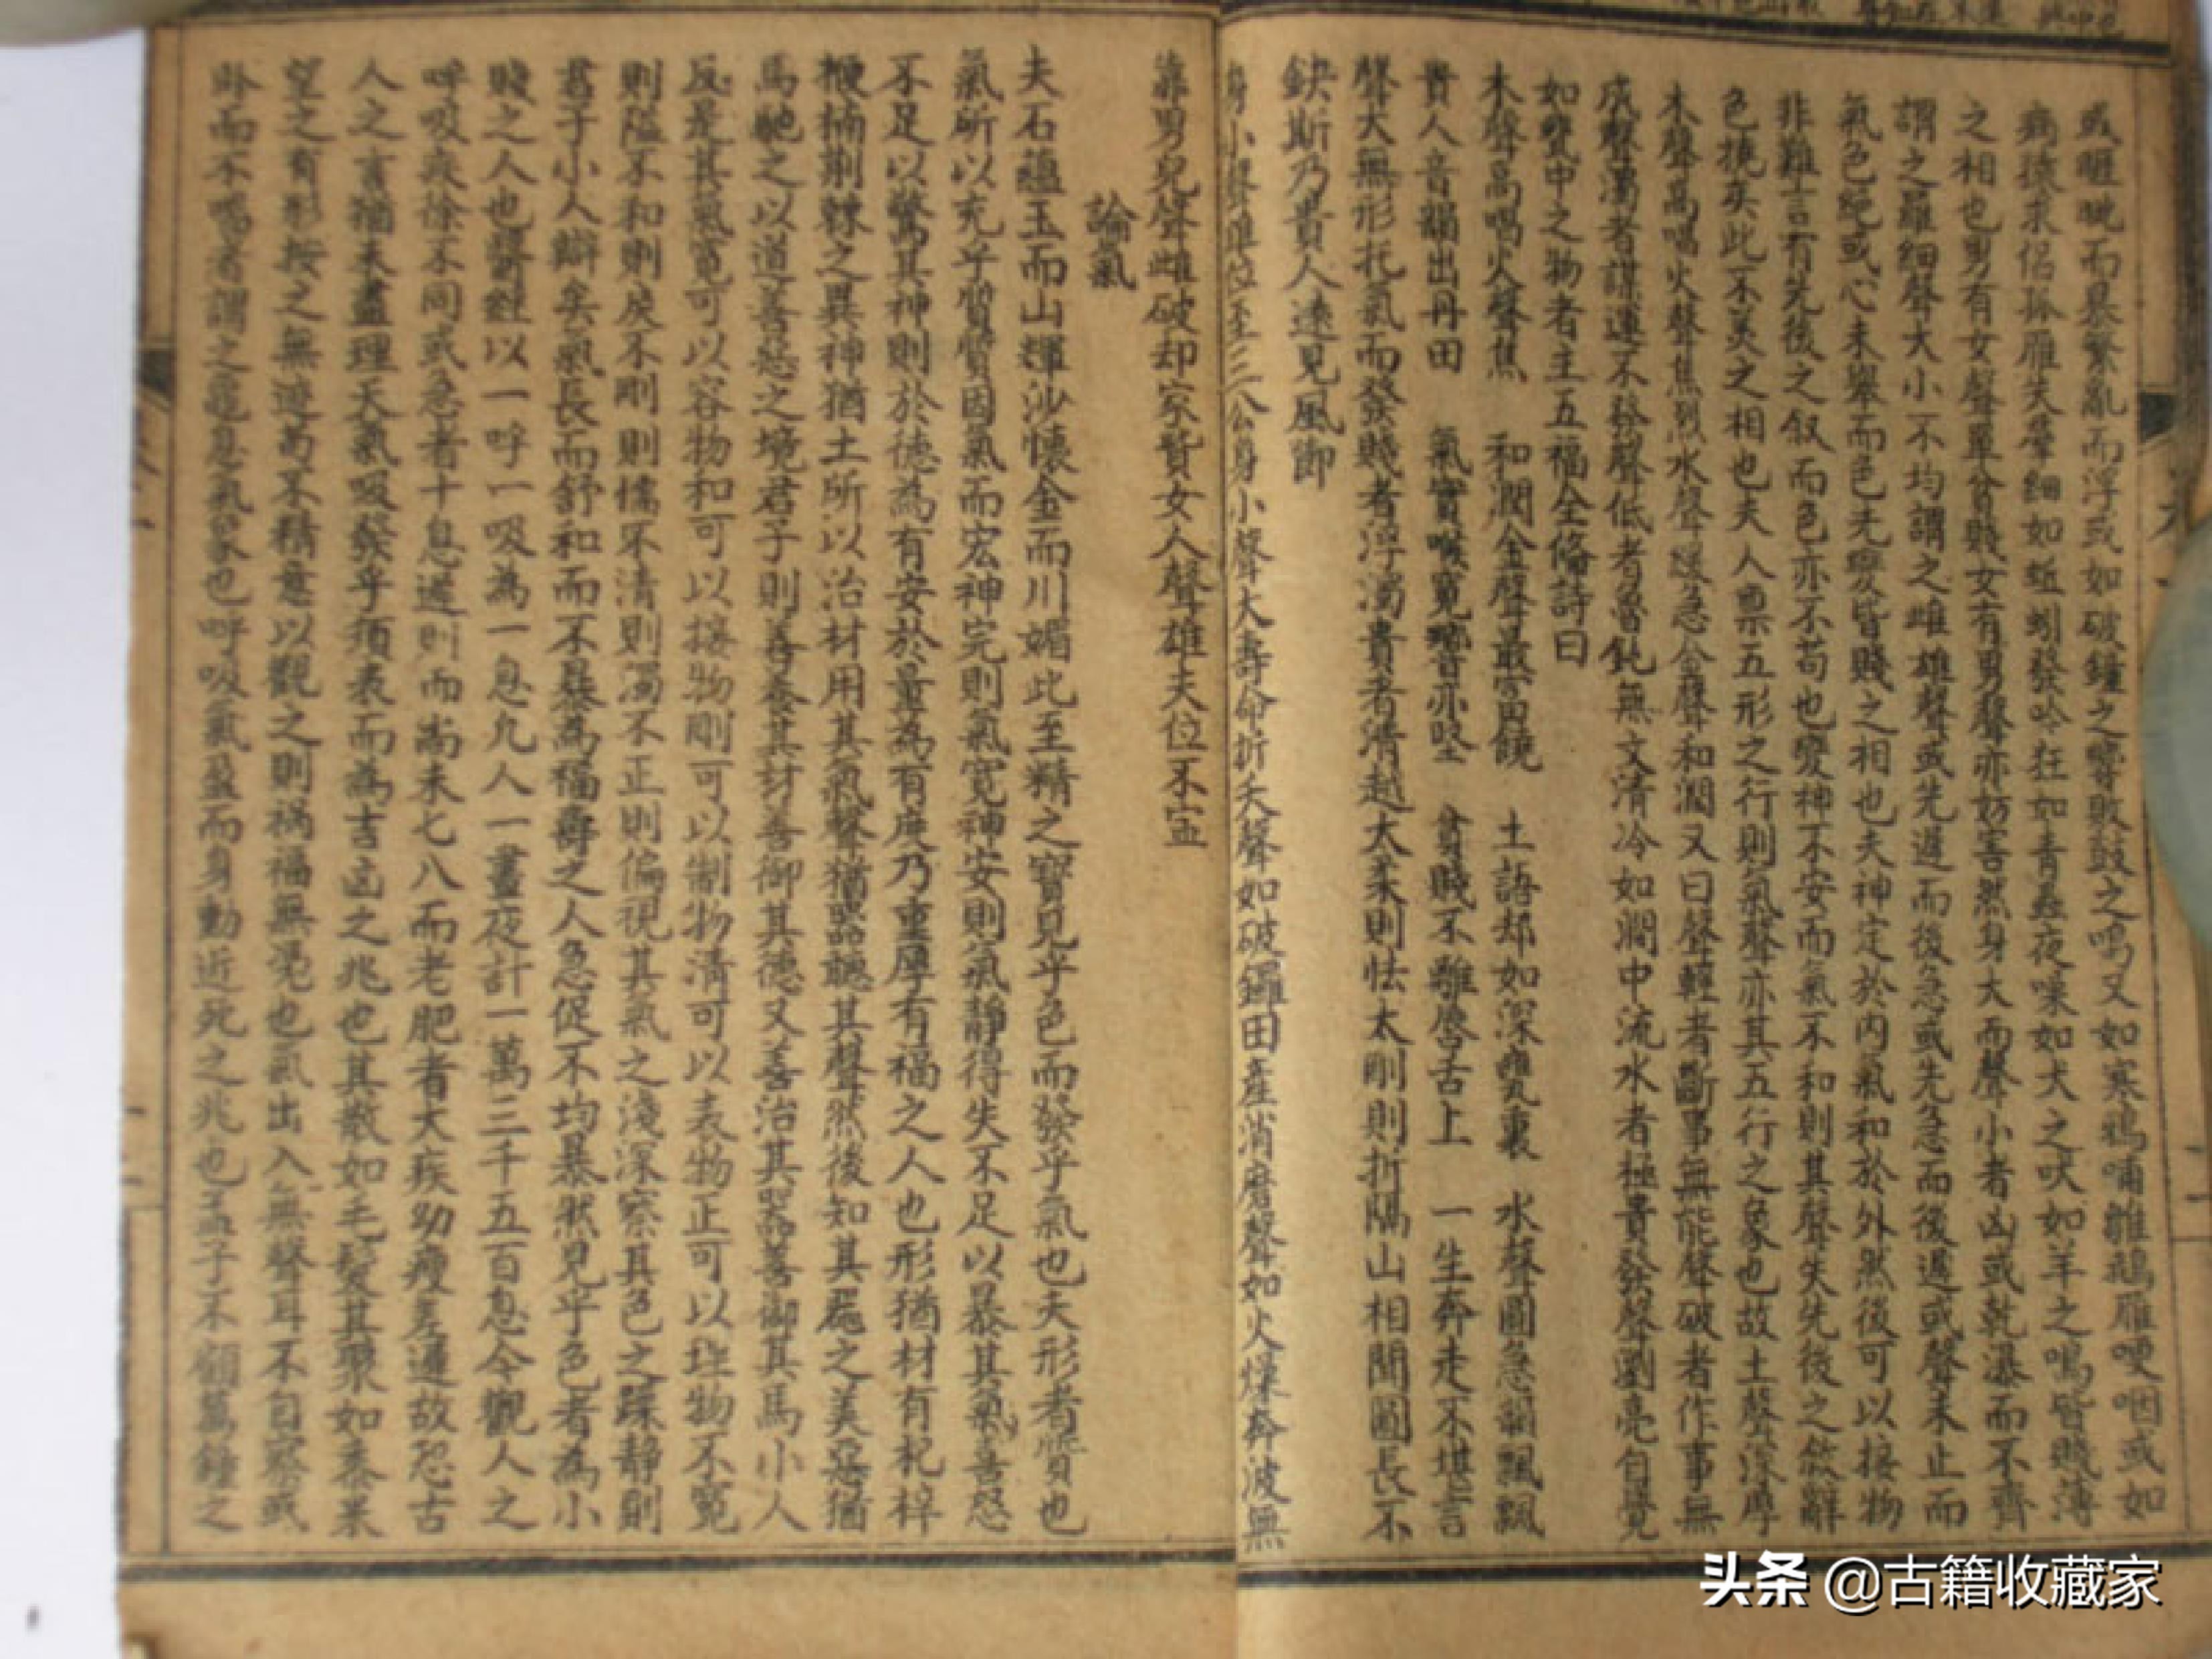 或喘嘅而暴繁亂而浮或如破鐘之響敗鼓之鳴又如寒鴉哺雛鵝雁哽咽或如
病猿求侶孤雁失羣細如蚯蚓發吟狂如青䵷夜噪如犬之吠如羊之鳴皆賤薄
之相也男有女聲單貧賤女有男聲亦妨害然身大而聲小者凶或乾濕而不齊
謂之羅細聲大小不均謂之雌雄聲或先遲而後急或先急而後遲或聲未止而
氣色絕或心未舉而色先變皆賤之相也夫神定於內氣和於外然後可以接物
非難言有先後之叙而色亦不苟也變神不安而氣不和則其聲失先後之敘辭
色撓矣此不美之相也夫人稟五形之行則氣聲亦其五行之象也故土聲深厚
木聲高唱火聲焦烈水聲緩急金聲和潤又曰聲輕者斷事無能聲破者作事無
成聲濁者謀運不發聲低者魯鈍無文清冷如澗中流水者極貴發聲瀏亮自覺
如甕中之物者主五福全俻詩曰
木聲高唱火聲焦 和潤金聲最富饒 土語却如深甕裏 水聲圓急韻飄飄
貴人音韻出丹田 氣實喉寬響亦堅 貧賤不離唇舌上 一生奔走不堪言
聲大無形托氣而發賤者浮濁貴者清越太柔則怯太剛則折隔山相聞圓長不
缺斯乃貴人遠見風節
身小聲雄位至三公身小聲大壽命折夭聲如破鑼田產消磨聲如火燥奔波無
靠男兒聲雌破却家貲女人聲雄夫位不寍
論氣
夫石蘊玉而山輝沙懷金而川媚此至精之寶見乎色而發乎氣也夫形者質也
氣所以充乎質質因氣而宏神完則氣寬神安則氣靜得失不足以暴其氣喜怒
不足以驚其神則於德為有安於量為有度乃重厚有福之人也形猶材有杞梓
楩楠荆棘之異神猶土所以治材用其氣聲猶器聽其聲然後知其器之美惡猶
馬馳之以道善惡之境君子則善養其材善御其德又善治其器善御其馬小人
反是其氣寬可以容物和可以接物剛可以制物清可以表物正可以理物不寬
則隘不和則戾不剛則懦不清則濁不正則偏視其氣之淺深察其色之躁靜則
君子小人辯矣氣長而舒和而不暴為福壽之人急促不均暴然見乎色者為小
賤之人也醫經以一呼一吸為一息凡人一晝夜計一萬三千五百息今觀人之
呼吸疾徐不同或急者十息遲則而尚未七八而老肥者大疾幼瘦差遲故恐古
人之言猶未盡理夫氣吸發乎頦表而為吉凶之兆也其散如毛髮其聚如黍米
望之有形按之無迹苟不精意以觀之則禍福無憑也氣出入無聲耳不自察或
卧而不喘者謂之龜息氣象也呼吸氣盈而身動近死之兆也孟子不顧萬鍾之
头条 @古籍收藏家